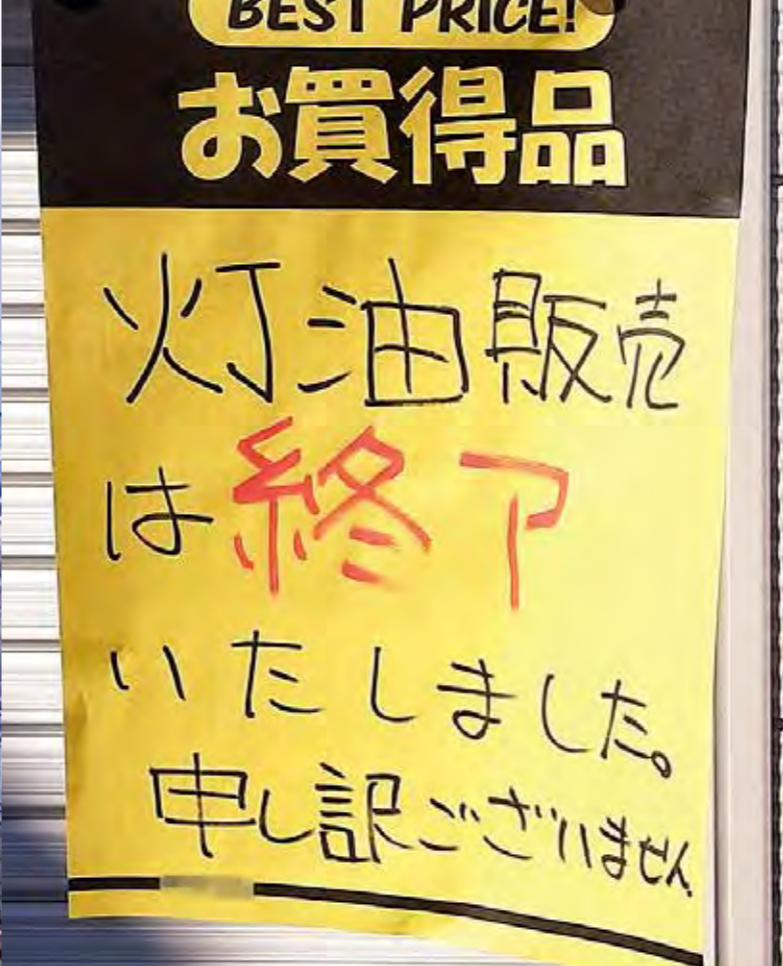 BEST PRICE!
お買得品
灯油販売
は終了
いたしました。
申し訳ございません